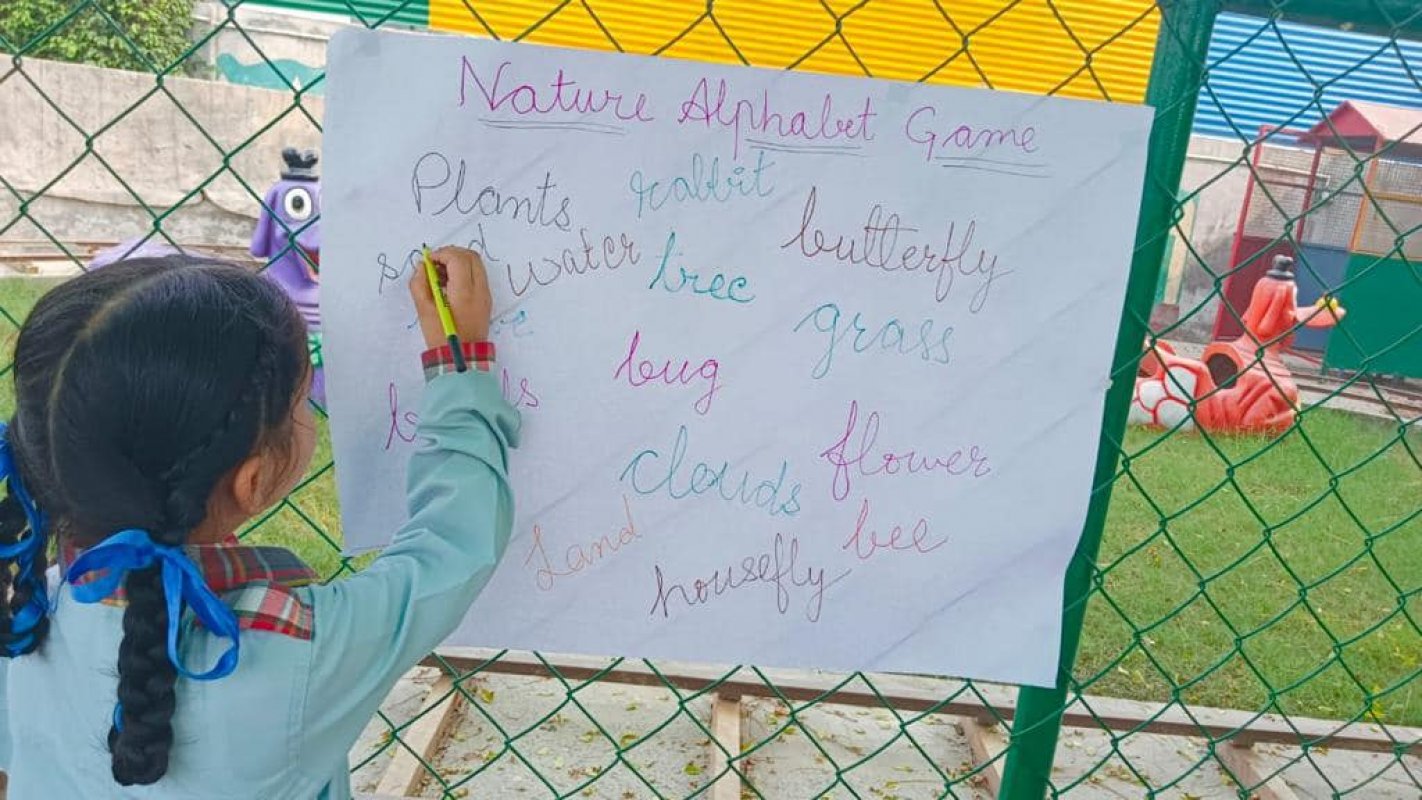 Nature Alphabet Game
Plants rabbit butterfly
water tree
grass
bug
clouds flower
Land bee
housefly